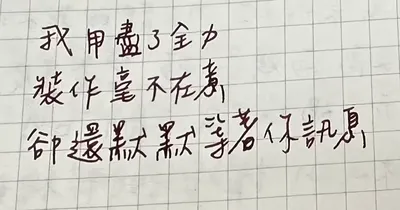 我用盡了全力
裝作毫不在意
卻還默默等著你訊息